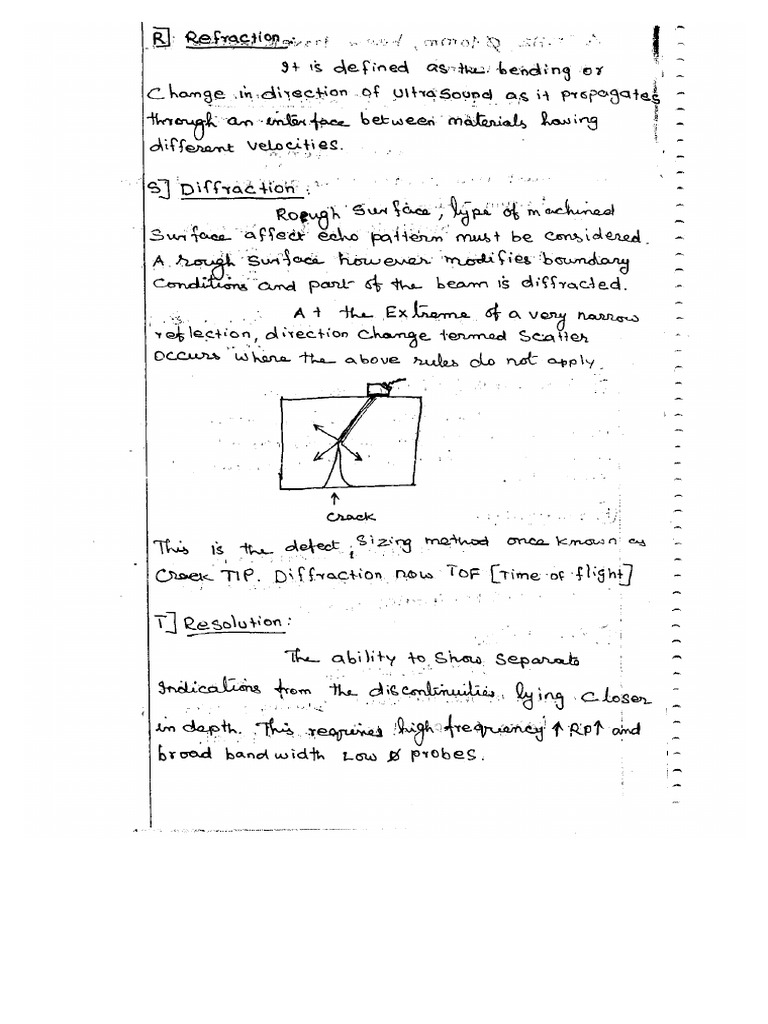 R] Refraction
It is defined as the bending or
Change in direction of ultrasound as it propagates
through an interface between materials having
different velocities.
S] Diffraction :
Rough Surface, type of machined
Surface affect echo pattern must be considered.
A rough Surface however modifies boundary
Conditions and part of the beam is diffracted.
At the Extreme of a very narrow
reflection, direction Change termed Scatter
occurs where the above rules do not apply.
↑
Crack
This is the defect, Sizing method once known as
Crack TIP. Diffraction now TOF [Time of flight]
T] Resolution :
The ability to Show Separate
Indications from the discontinuities lying Closer
in depth. This requires high frequency ↑ Rp↑ and
broad band width Low Ø probes.